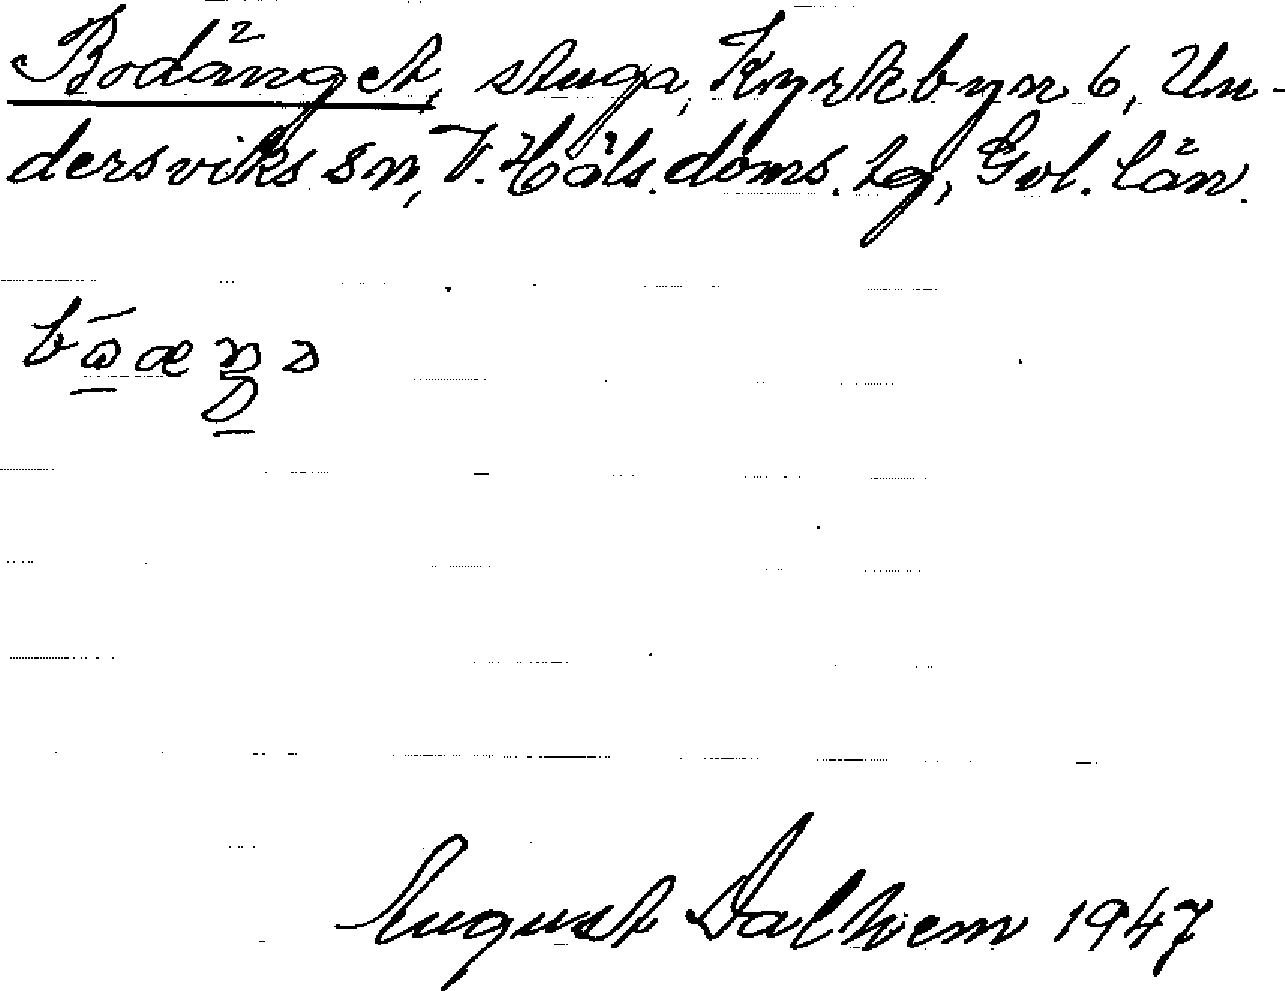 Bodänget, stuga, Kyrkbyn 6, Un-
dersviks sn, V. Häls. doms. lg, Gvl. län.
August Dalhem 1947